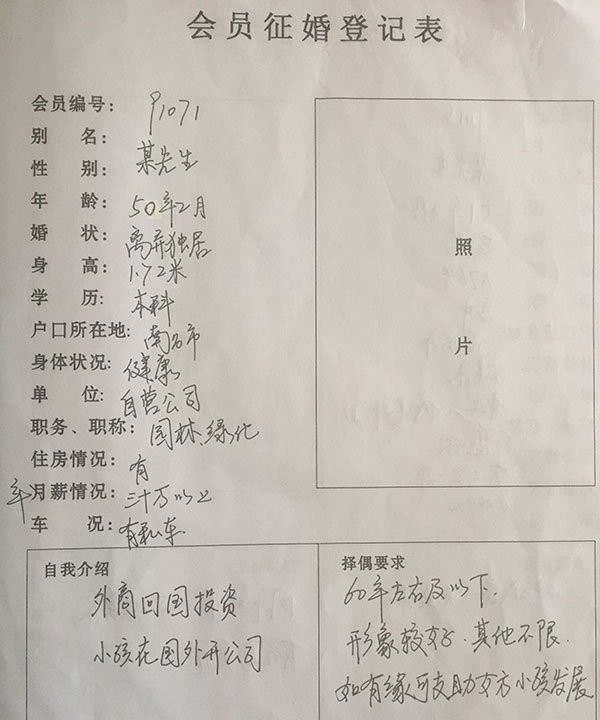 会员征婚登记表
会员编号: P1071
别 名: 某先生
性 别:
年 龄: 50年2月
婚 状: 离异独居
身 高: 1.72米
学 历: 本科
户口所在地: 南京市
身体状况: 健康
单 位: 自营公司
职务、职称: 园林、绿化
住房情况: 有
年月薪情况: 三十万以上
车 况: 有私车
照
片
自我介绍
外商回国投资
小孩在国外开公司
择偶要求
60年左右及以下.
形象较好.其他不限.
如有缘可支助女方小孩发展